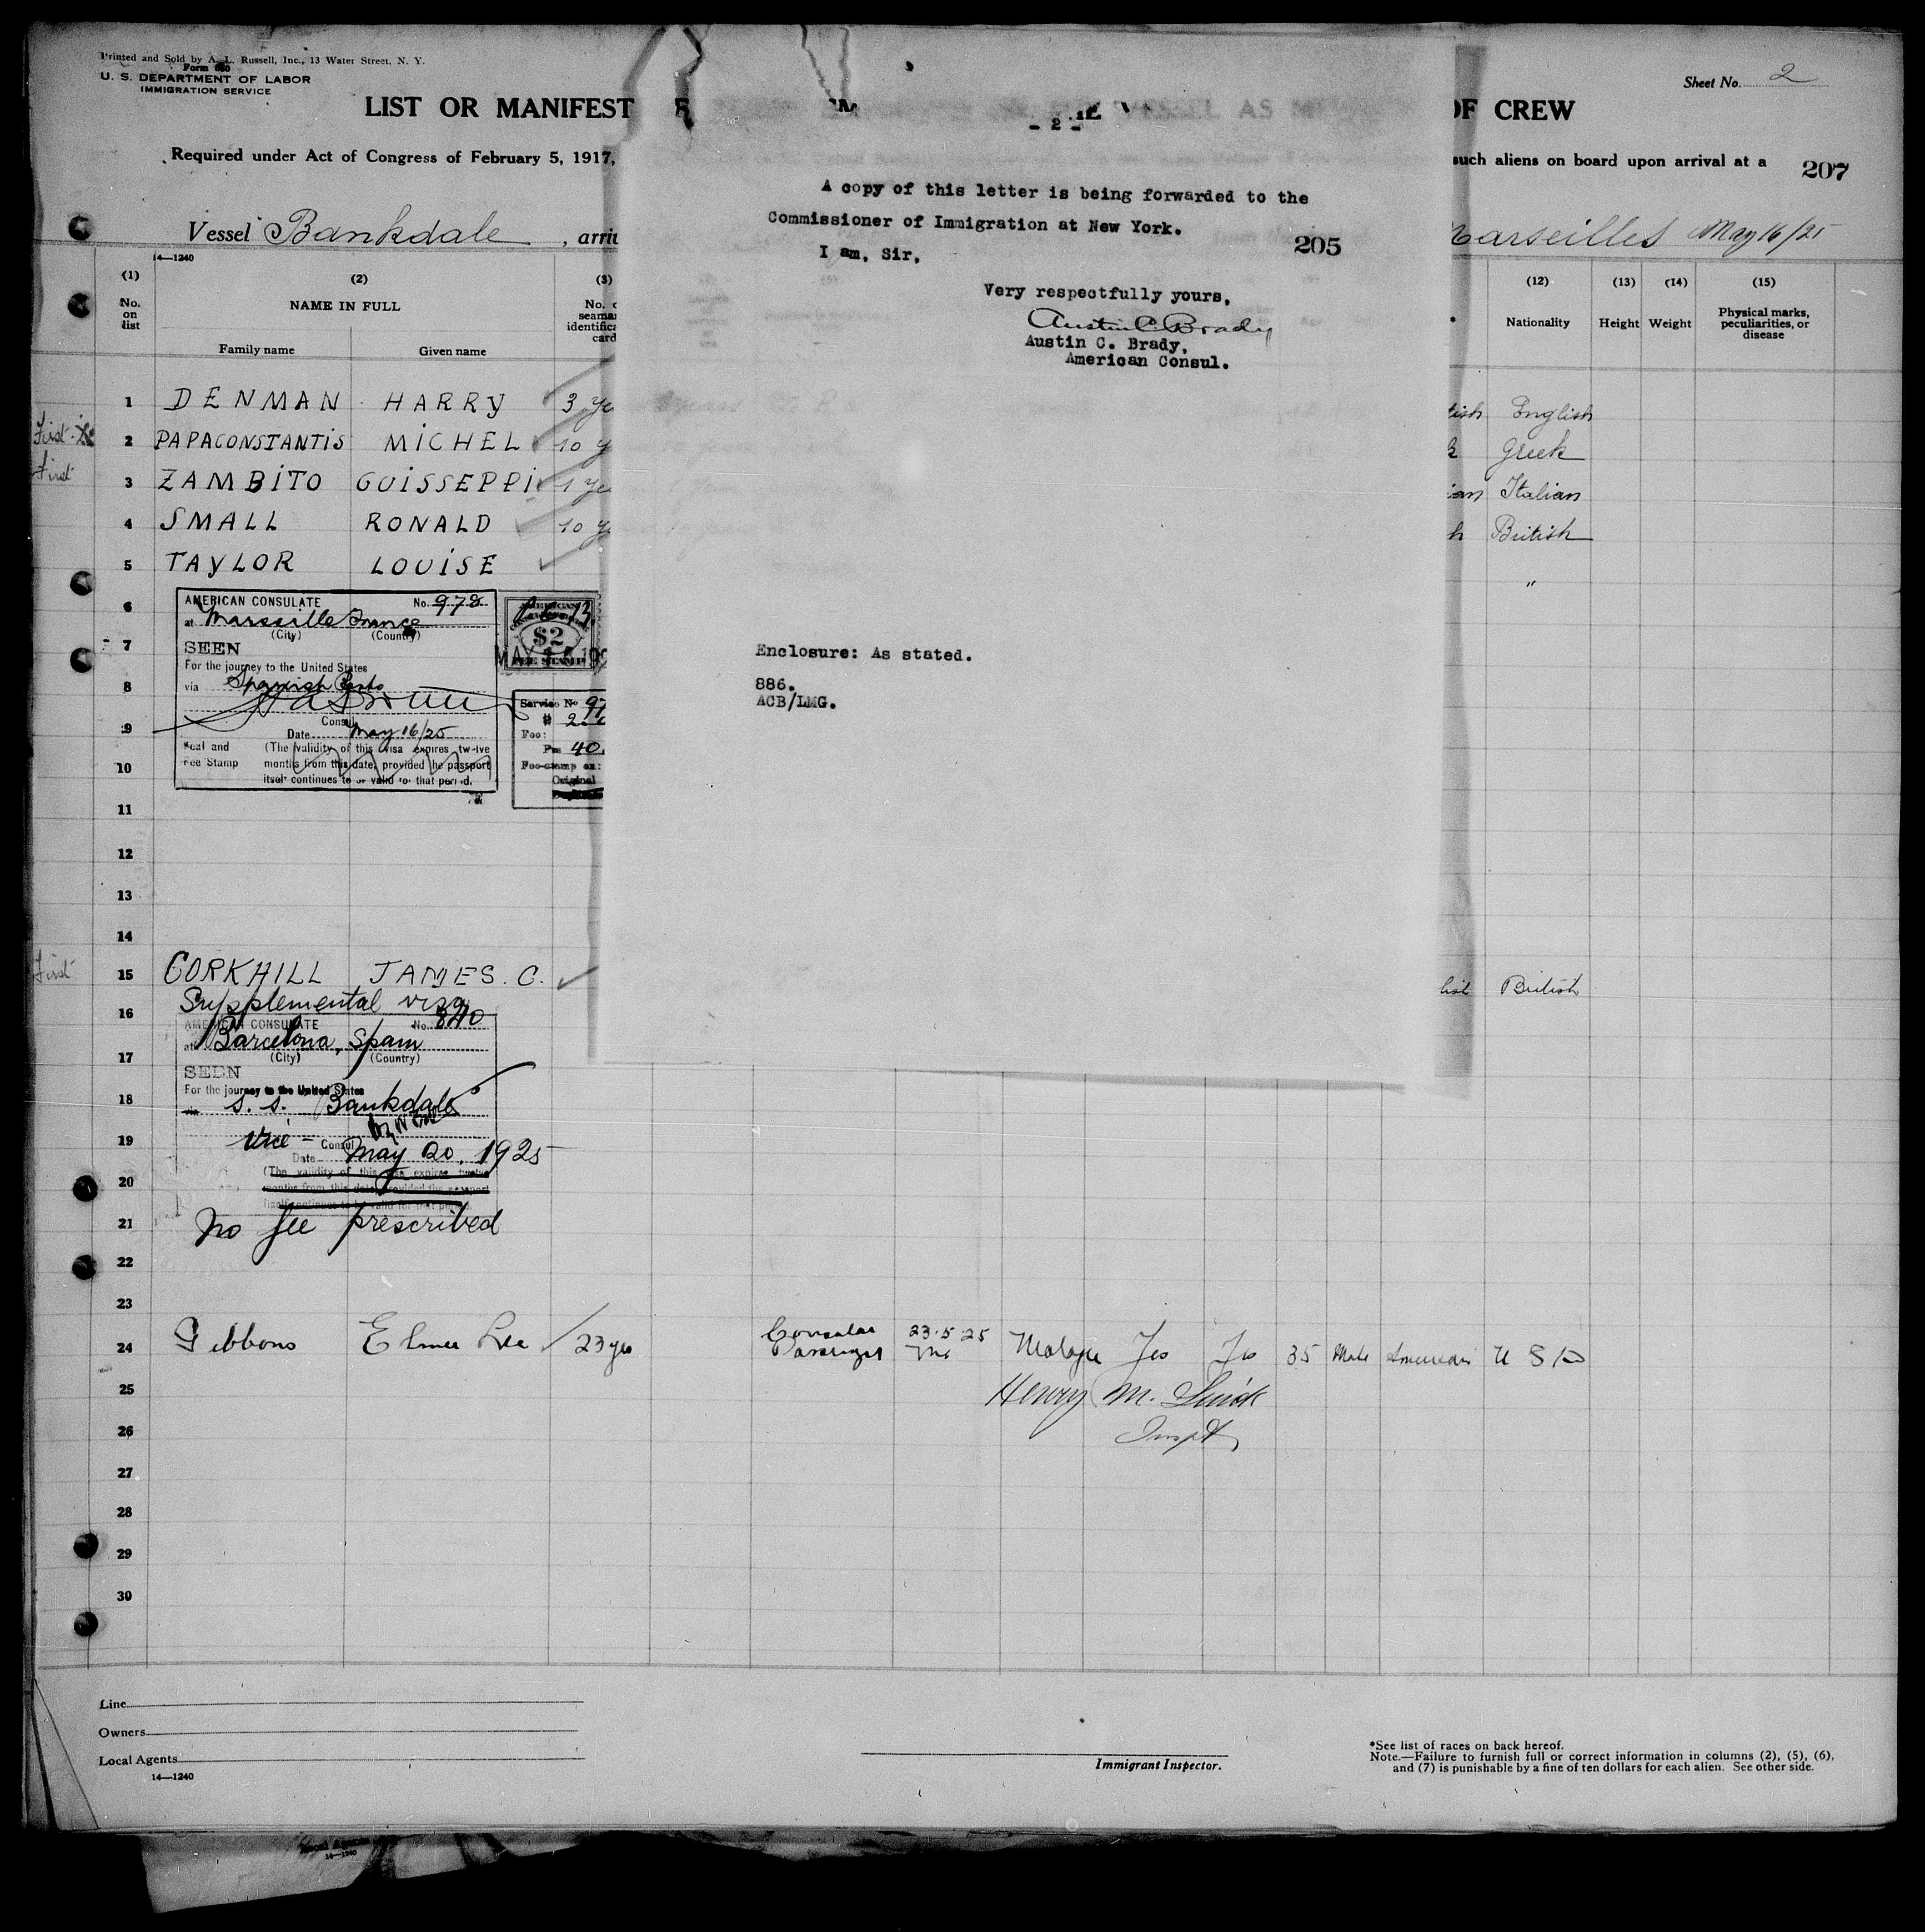 Printed and Sold by A. L. Russell, Inc., 13 Water Street, N. Y.
Form
U. S. DEPARTMENT OF LABOR
IMMIGRATION SERVICE
Sheet No. 2
LIST OR MANIFEST
VESSEL AS
OF CREW
Required under Act of Congress of February 5, 1917,
such aliens on board upon arrival at a
207
Vessel Bankdale, arri
Marseilles May 16/25
- 2 -
A copy of this letter is being forwarded to the
Commissioner of Immigration at New York.
I am, Sir,
205
Very respectfully yours,
Austin C Brady
Austin C. Brady,
American Consul.
Enclosure: As stated.
886.
ACB/LMG.
14—1240
(1) (2) (3) (12) (13) (14) (15)
No. on list
NAME IN FULL
Family name Given name
Nationality Height Weight Physical marks, peculiarities, or disease
1 DENMAN HARRY 3 English
First 2 PAPACONSTANTIS MICHEL 10 Greek
First 3 ZAMBITO GUISSEPPI 1 Italian
4 SMALL RONALD 10 British
5 TAYLOR LOUISE "
6
7
8
9
10
11
12
13
14
AMERICAN CONSULATE No. 978
at Marseille France
(City) (Country)
SEEN
For the journey to the United States
via Spanish Ports
Consul
Date May 16/25
Seal and Fee Stamp
(The validity of this visa expires twelve
months from this date, provided the passport
itself continues to be valid for that period.
AMERICAN
$2
FEE STAMP
Service No 97
Fee:
40
Fee-stamp on:
Original
First 15 CORKHILL JAMES. C. British
16
17
18
19
20
21
22
23
Supplemental visa
AMERICAN CONSULATE No. 840
at Barcelona, Spain
(City) (Country)
SEEN
For the journey to the United States
via S. S. Bankdale
Vice - Consul
Date May 20, 1925
(The validity of this visa expires twelve
months from this date, provided the passport
itself continues to be valid for that period.
No fee prescribed
24 Gibbons Elmer Lee 23 yrs Consular Passenger 23·5 25 Malaga Yes Yes 35 Male American U S A
25
Henry M.
26
Inspt
27
28
29
30
Line
Owners
Local Agents
14—1240
Immigrant Inspector.
*See list of races on back hereof.
Note.—Failure to furnish full or correct information in columns (2), (5), (6),
and (7) is punishable by a fine of ten dollars for each alien. See other side.